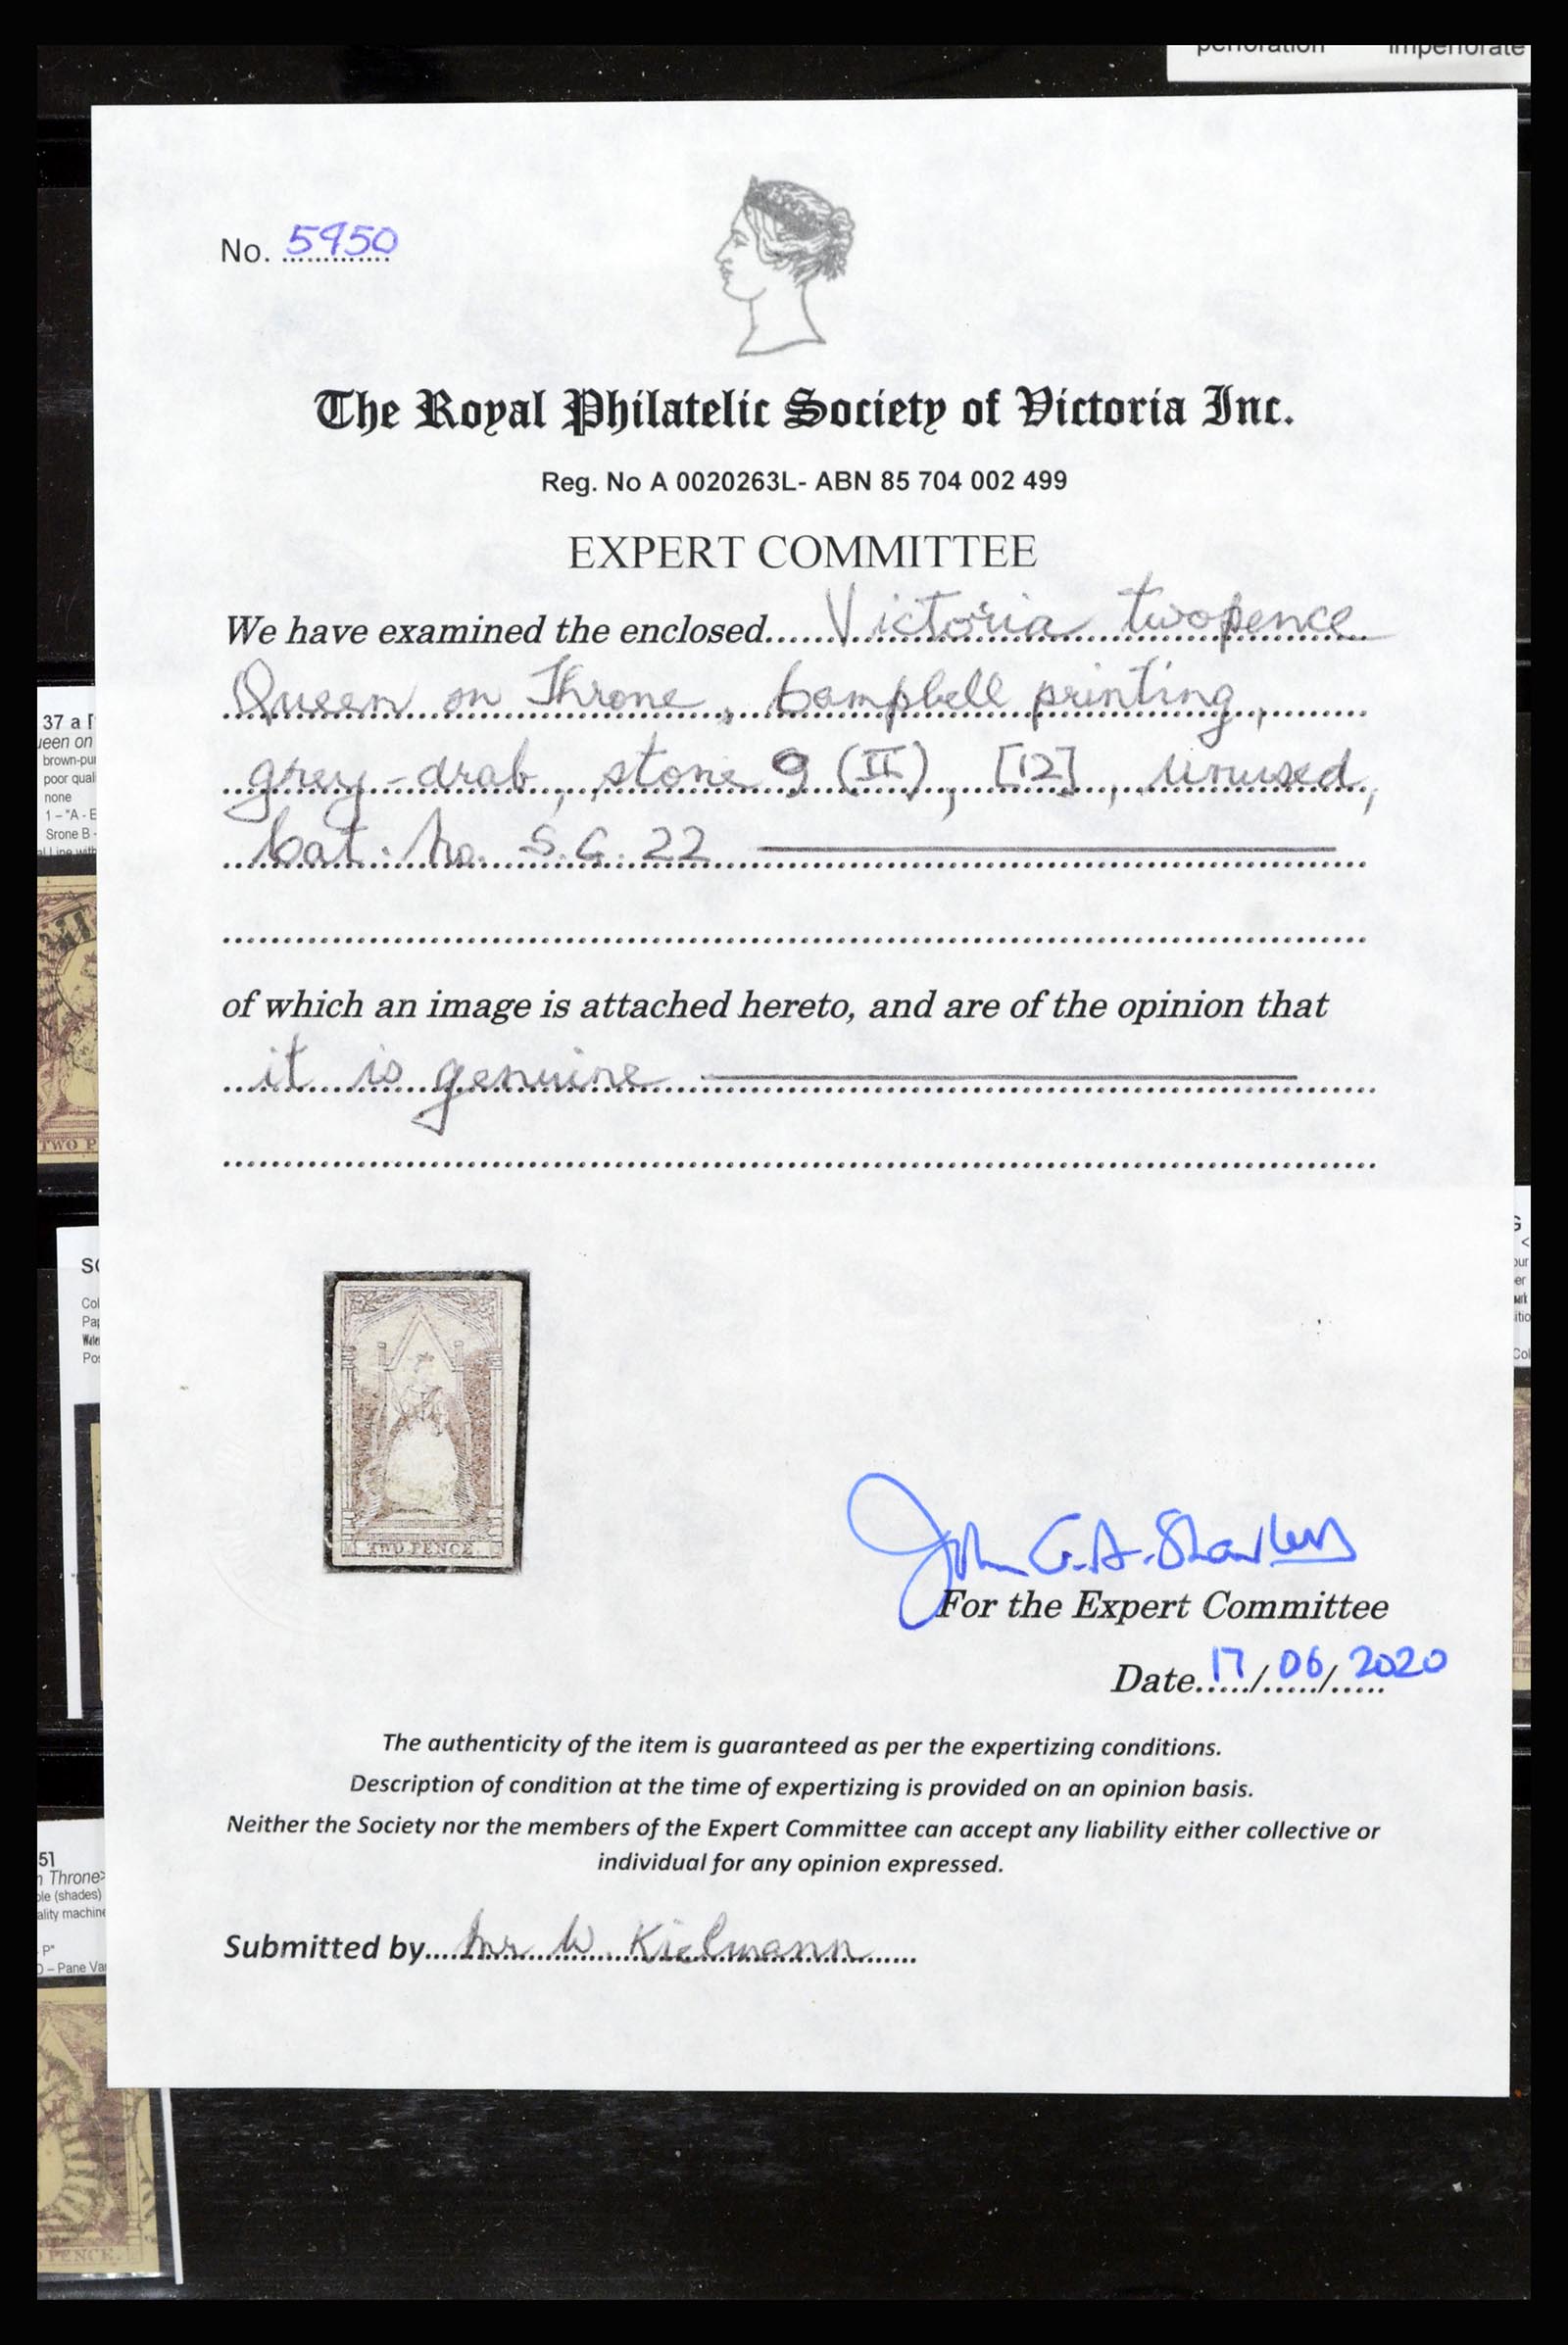 perforation imperforate
No. 5950
The Royal Philatelic Society of Victoria Inc.
Reg. No A 0020263L- ABN 85 704 002 499
EXPERT COMMITTEE
We have examined the enclosed...... Victoria twopence
Queen on Throne, Campbell printing,
grey-drab, stone 9 (II), [12], unused,
Cat. No. S.G. 22
of which an image is attached hereto, and are of the opinion that
it is genuine
TWO PENCE.
John G.A. Sharley
For the Expert Committee
Date 17/06/2020
The authenticity of the item is guaranteed as per the expertizing conditions.
Description of condition at the time of expertizing is provided on an opinion basis.
Neither the Society nor the members of the Expert Committee can accept any liability either collective or
individual for any opinion expressed.
Submitted by Mr W. Kielmann
37 a
een on
brown-pu
poor quali
none
1 – "A - E
Srone B -
TWO P
Col
Pap
Pos
51
Throne>
ple (shades)
ality machine
P"
– Pane Va
PENCE.